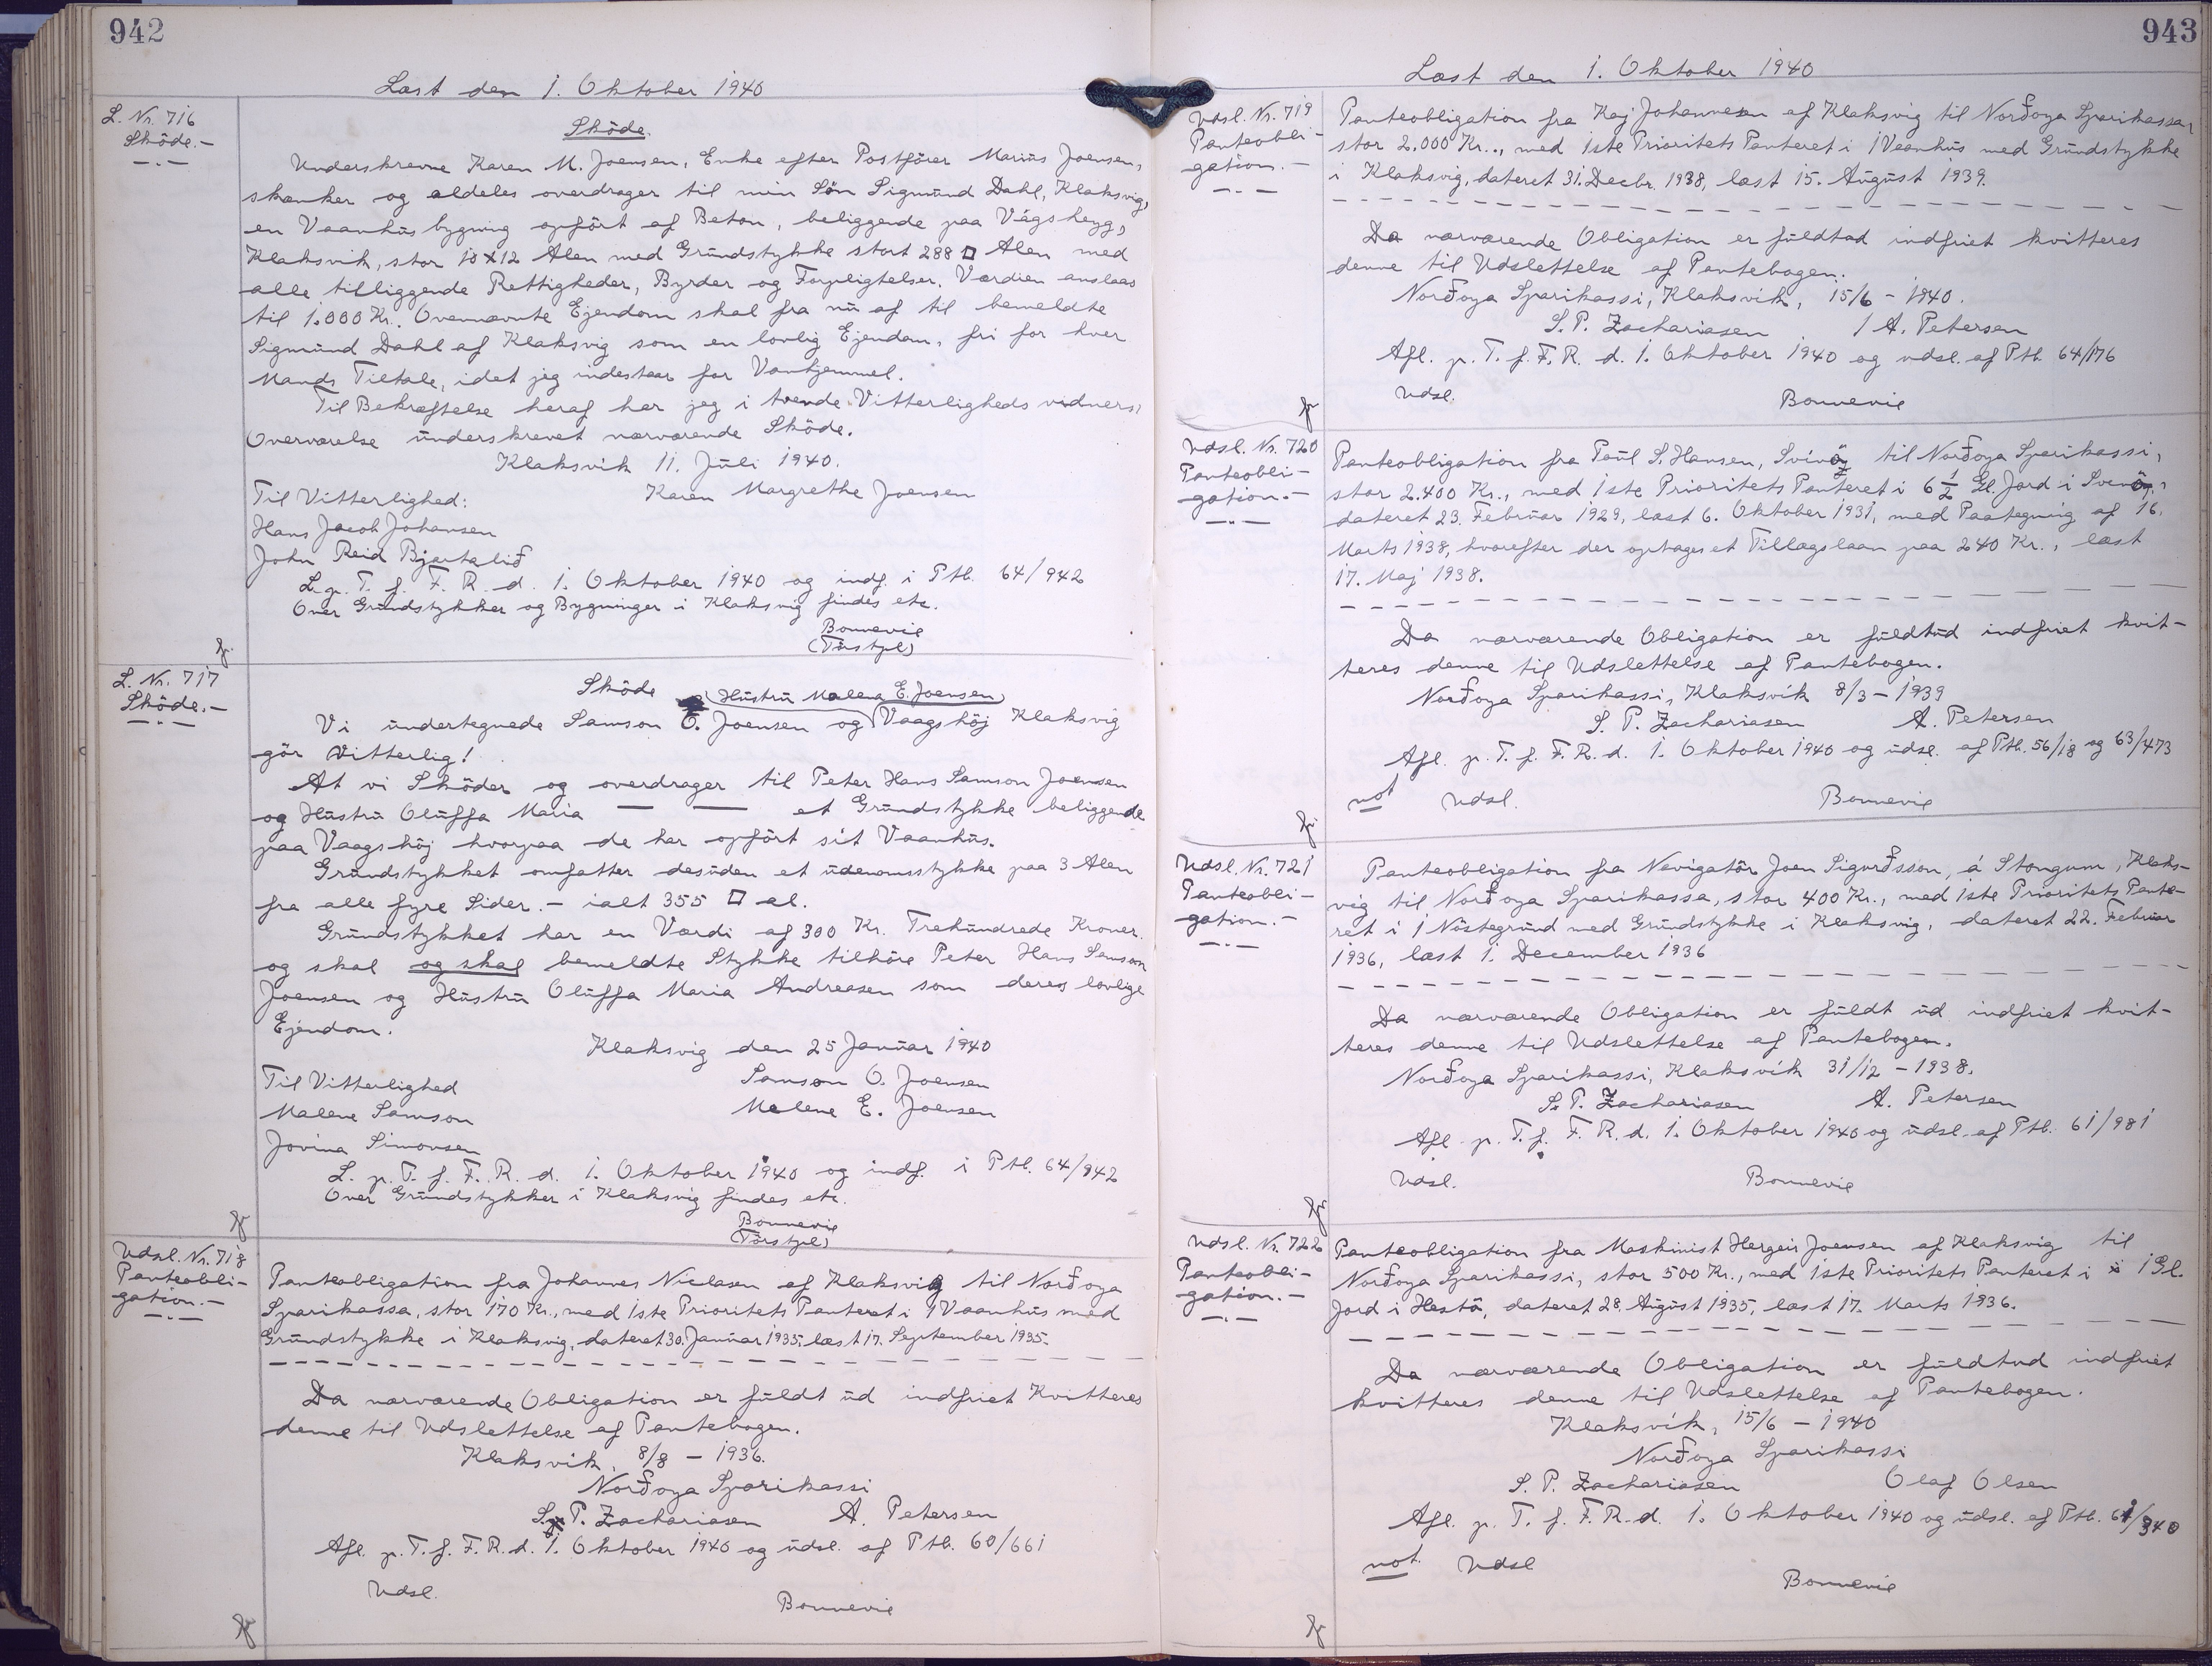 942
Læst den 1. Oktober 1940
L. Nr. 716
Sköde.-
Sköde.
Underskrevne Karen M. Joensen, Enke efter Postförer Marius Joensen,
skænker og aldeles overdrager til min Sön Sigmund Dahl, Klaksvig,
en Vaanhusbygning opfört af Beton, beliggende paa Vágsheyg,
Klaksvik, stor 10x12 Alen med Grundstykke stort 288 □ Alen med
alle tilliggende Rettigheder, Byrder og Forpligtelser. Værdien anslaas
til 1.000 Kr. Ovennævnte Ejendom skal fra nu af til bemeldte
Sigmund Dahl af Klaksvig som en lovlig Ejendom, fri for hver
Mands Tiltale, idet jeg indestaar for Vanhjemmel.
Til Bekræftelse heraf har jeg i tvende Vitterligheds vidners
Overværelse underskrevet nærværende Sköde.
Klaksvik 11. Juli 1940.
Til Vitterlighed: Karen Margrethe Joensen
Hans Jacob Johansen
John Reid Bjartalið
L. p. T. f. F. R. d. 1. Oktober 1940 og indf. i Ptb. 64/942
Over Grundstykker og Bygninger i Klaksvig findes etc.
Bonnevie
(Torstpl)
fr.
L. Nr. 717
Sköde.-
Sköde (Hustru Malena E. Joensen)
Vi undertegnede Samson O. Joensen og Vaagshöj Klaksvig
gör Vitterlig!
At vi Sköder og overdrager til Peter Hans Samson Joensen
og Hustru Oluffa Maria — — et Grundstykke beliggende
paa Vaagshöj hvorpaa de har opfört sit Vaanhus.
Grundstykket omfatter desuden et udenomsstykke paa 3 Alen
fra alle fyre Sider. - ialt 355 □ al.
Grundstykket har en Værdi af 300 Kr. Trehundrede Kroner.
og skal og skal bemeldte Stykke tilhöre Peter Hans Samson
Joensen og Hustru Oluffa Maria Andreasen som deres lovlige
Ejendom.
Klaksvig den 25 Januar 1940
Til Vitterlighed Samson O. Joensen
Malene Samson Malene E. Joensen
Jovina Simonsen
L. p. T. f. F. R. d. 1. Oktober 1940 og indf. i Ptb. 64/942
Over Grundstykker i Klaksvig findes etc.
Bonnevie
(Torstpl)
fr
Udsl. Nr. 718
Panteobli-
gation.-
Panteobligation fra Johannes Niclasen af Klaksvig til Norðoya
Sparikassa, stor 170 Kr., med 1ste Prioritets Panteret i 1 Vaanhus med
Grundstykke i Klaksvig, dateret 30. Januar 1935, læst 17. September 1935.
Da nærværende Obligation er fuldt ud indfriet Kvitteres
denne til Udslettelse af Pantebogen.
Klaksvik, 8/8 - 1936.
Norðoya Sparikassi
S. P. Zachariasen A. Petersen
Afl. p. T. f. F. R. d. 1. Oktober 1940 og udsl. af Ptb. 60/661
Udsl.
Bonnevie
fr
943
Læst den 1. Oktober 1940
Udsl. Nr. 719
Panteobli-
gation.-
Panteobligation fra Kaj Johannesen af Klaksvig til Norðoya Sparikassa,
stor 2.000 Kr., med 1ste Prioritets Panteret i 1 Vaanhus med Grundstykke
i Klaksvig, dateret 31. Decbr. 1938, læst 15. August 1939.
Da nærværende Obligation er fuldtud indfriet kvitteres
denne til Udslettelse af Pantebogen.
Norðoya Sparikassi, Klaksvik, 15/6 - 1940.
S. P. Zachariasen / A. Petersen
Afl. p. T. f. F. R. d. 1. Oktober 1940 og udsl. af Ptb. 64/176
Udsl.
Bonnevie
fr
Udsl. Nr. 720
Panteobli-
gation.-
Panteobligation fra Poul S. Hansen, Svinöy til Norðoya Sparikassi,
stor 2.400 Kr., med 1ste Prioritets Panteret i 6 1/2 Gl. Jord i Svinöy,
dateret 23. Februar 1929, læst 6. Oktober 1931, med Paategning af 16.
Marts 1938, hvorefter der optages et Tillægslaan paa 240 Kr., læst
17. Maj 1938.
Da nærværende Obligation er fuldtud indfriet kvit-
teres denne til Udslettelse af Pantebogen.
Norðoya Sparikassi, Klaksvik 8/3 - 1939
S. P. Zachariasen A. Petersen
Afl. p. T. f. F. R. d. 1. Oktober 1940 og udsl. af Ptb. 56/18 og 63/473
not Udsl.
Bonnevie
fr.
Udsl. Nr. 721
Panteobli-
gation.-
Panteobligation fra Navigatör Joen Sigurðsson, á Stongum, Klaks-
vig til Norðoya Sparikassa, stor 400 Kr., med 1ste Prioritets Pante-
ret i 1 Nöstegrund med Grundstykke i Klaksvig, dateret 22. Februar
1936, læst 1. December 1936
Da nærværende Obligation er fuldt ud indfriet kvit-
teres denne til Udslettelse af Pantebogen.
Norðoya Sparikassi, Klaksvik 31/12 - 1938.
S. P. Zachariasen A. Petersen
Afl. p. T. f. F. R. d. 1. Oktober 1940 og udsl. af Ptb. 61/981
Udsl.
Bonnevie
fr
Udsl. Nr. 722
Panteobli-
gation.-
Panteobligation fra Maskinist Hergeir Joensen af Klaksvig til
Norðoya Sparikassi, stor 500 Kr., med 1ste Prioritets Panteret i 1 Gl.
Jord i Hestö, dateret 28. August 1935, læst 17. Marts 1936.
Da nærværende Obligation er fuldtud indfriet
kvitteres denne til Udslettelse af Pantebogen.
Klaksvik, 15/6 - 1940
Norðoya Sparikassi
S. P. Zachariasen Olaf Olsen
Afl. p. T. f. F. R. d. 1. Oktober 1940 og udsl. af Ptb. 61/340
not. Udsl
Bonnevie
fr